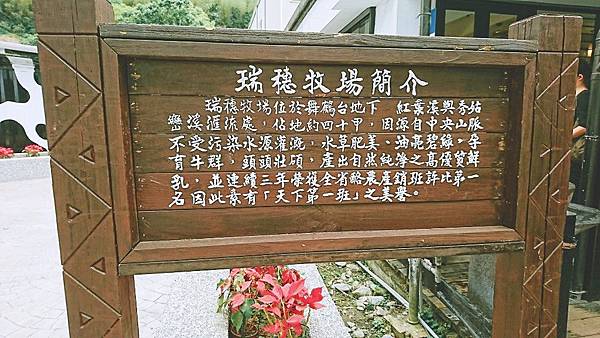 瑞穗牧場簡介
瑞穗牧場位於舞鶴台地下 紅葉溪與秀姑
巒溪滙流處，佔地約四十甲，因源自中央山脈
不受污染水源灌溉，水草肥美、油亮碧綠。孕
育牛群，頭頭壯碩，產出自然純淨之高優質鮮
乳，並連續三年榮獲全省酪農產銷班評比第一
名因此素有「天下第一班」之美譽。